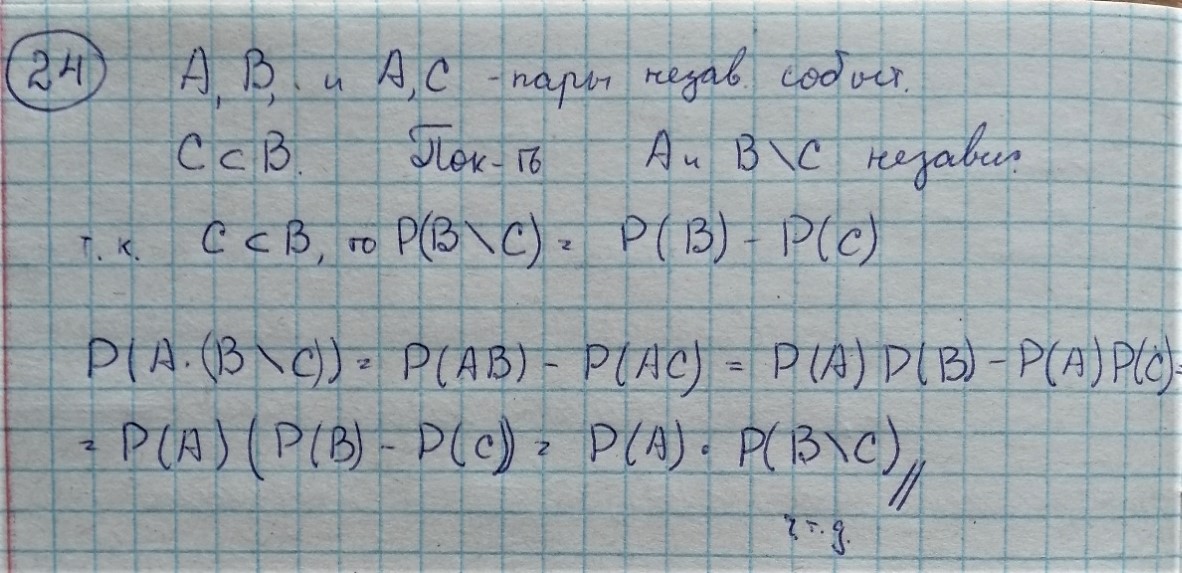 24 A, B, и A, C - пары незав. событ.
C ⊂ B. Пок-ть A и B \ C независ.
т. к. C ⊂ B, то P(B \ C) = P(B) - P(C)
P(A·(B \ C)) = P(AB) - P(AC) = P(A) P(B) - P(A) P(C) =
= P(A) (P(B) - P(C)) = P(A) · P(B \ C) //
ч.т.д.